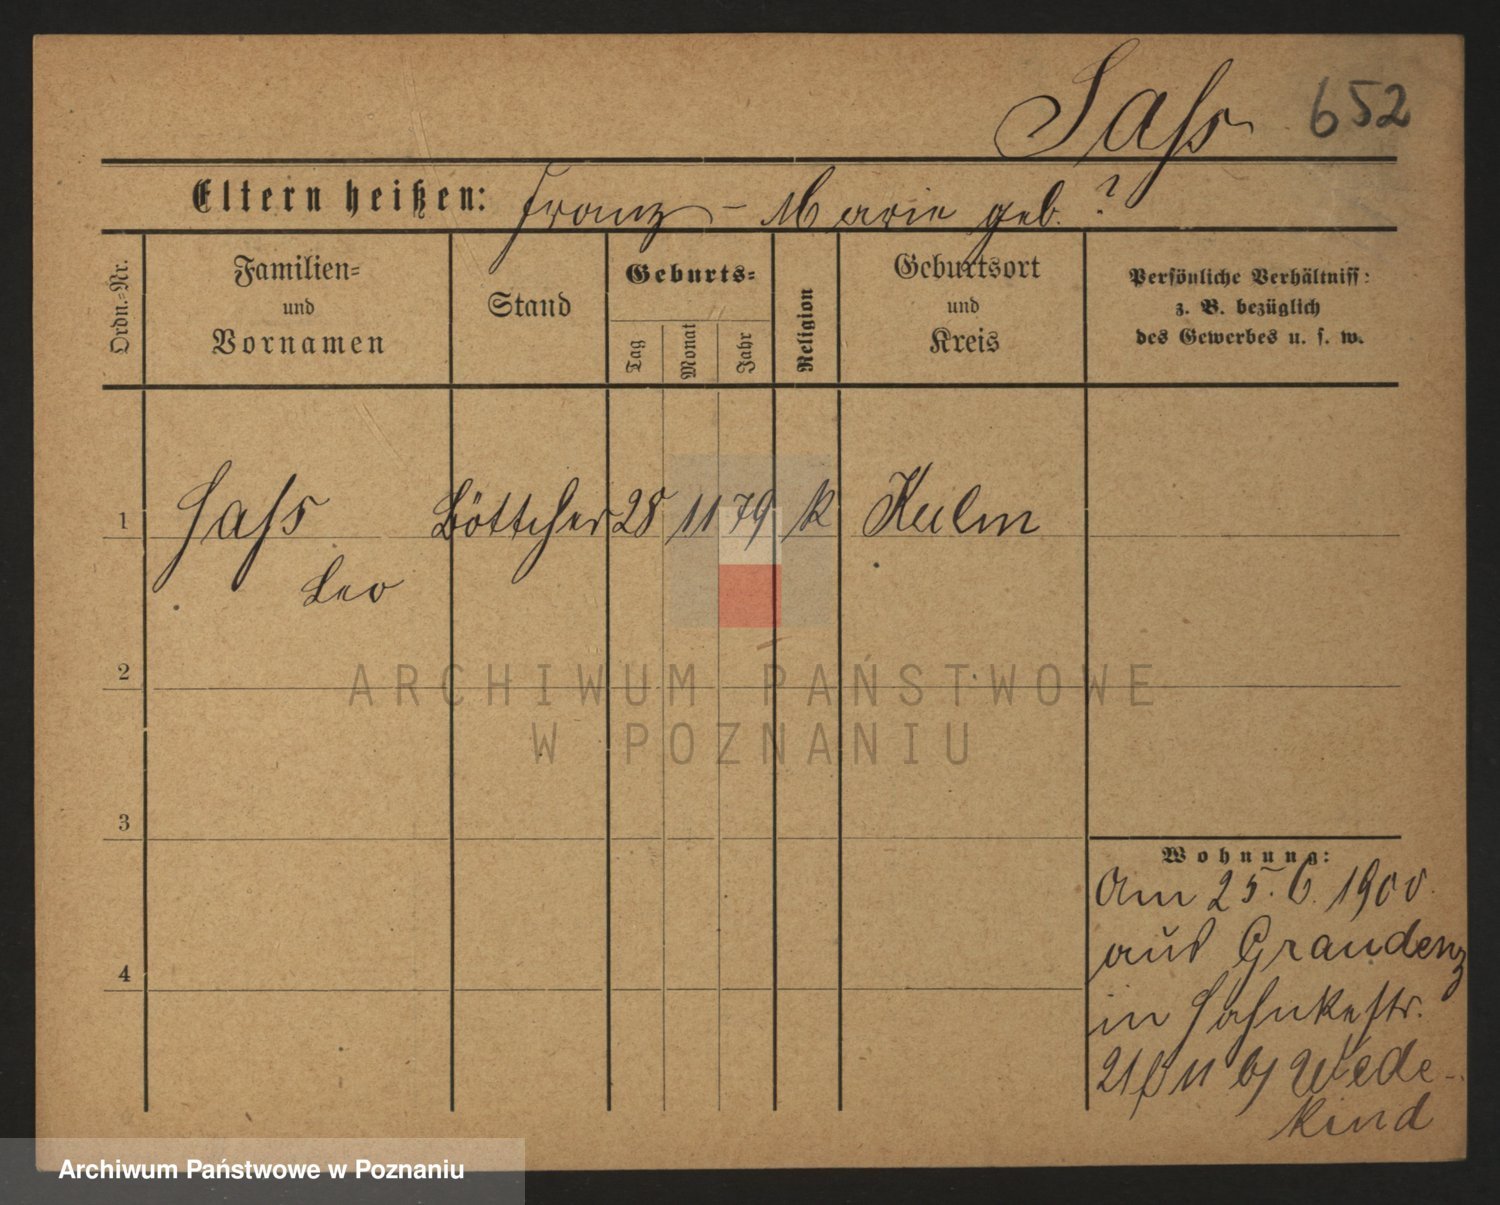 Sass 652
Eltern heißen: Franz – Marie geb. ?
Ordn.-Nr.
Familien-
und
Vornamen
Stand
Geburts-
Tag
Monat
Jahr
Religion
Geburtsort
und
Kreis
Persönliche Verhältniss:
z. B. bezüglich
des Gewerbes u. s. w.
1 Sass Böttcher 28 11 79 k Kulm
Leo
2
ARCHIWUM PAŃSTWOWE
W POZNANIU
3
Wohnung:
Am 25. 6. 1900.
aus Graudenz
4
in
21 II bj Wede-
kind
Archiwum Państwowe w Poznaniu